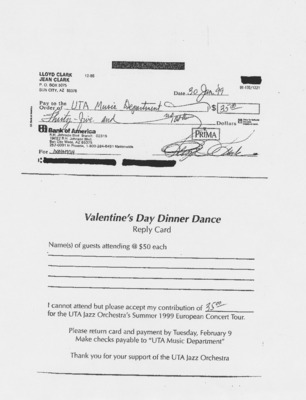 LLOYD CLARK
JEAN CLARK
P. O. BOX
SUN CITY, AZ
Date 30 Jan 99
Pay to the
Order of UTA Music Department $ 35.00
Thirty five and Dollars
Bank of America
PRIMA
For
Valentine's Day Dinner Dance
Reply Card
Name(s) of guests attending @ $50 each
I cannot attend but please accept my contribution of 35.00
for the UTA Jazz Orchestra's Summer 1999 European Concert Tour.
Please return card and payment by Tuesday, February 9
Make checks payable to "UTA Music Department"
Thank you for your support of the UTA Jazz Orchestra